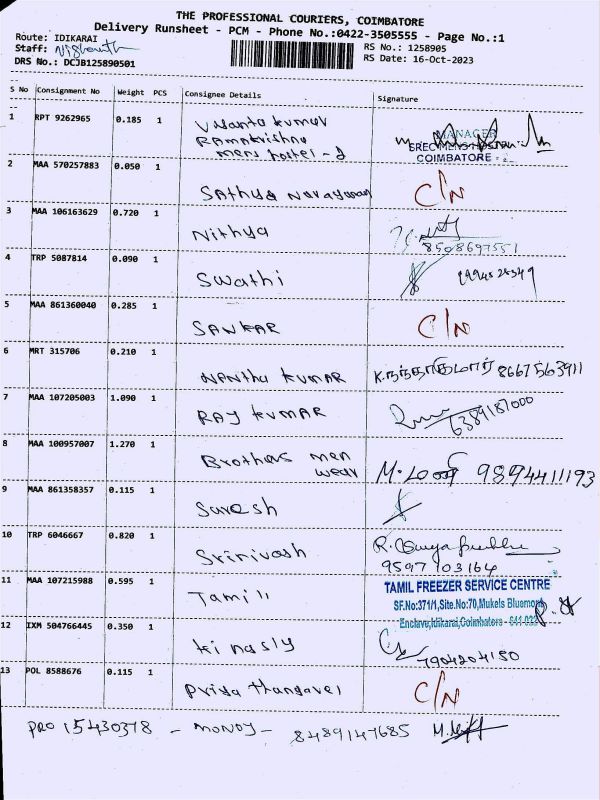 THE PROFESSIONAL COURIERS, COIMBATORE
Delivery Runsheet - PCM - Phone No.:0422-3505555 - Page No.:1
Route: IDIKARAI
RS No.: 1258905
Staff:
RS Date: 16-Oct-2023
DRS No.: DCJB125890501
S No Consignment No Weight PCS Consignee Details Signature
1 RPT 9262965 0.185 1 Vasanta kumar
Ramakrishna
mens hostel - 2
MANAGER
COIMBATORE
2 MAA 570257883 0.050 1 Sathya Narayanan C/N
3 MAA 106163629 0.720 1 Nithya 8508697551
4 TRP 5087814 0.090 1 Swathi
5 MAA 861360040 0.285 1 SANKAR C/N
6 MRT 315706 0.210 1 NANthu kumAR K.நந்தகுமார் 8667563911
7 MAA 107205003 1.090 1 RAJ kumAR 6389187000
8 MAA 100957007 1.270 1 Brothers men
wear 9894411193
9 MAA 861358357 0.115 1 Suresh
10 TRP 6046667 0.820 1 Srinivash
9597103164
11 MAA 107215988 0.595 1 Tamil TAMIL FREEZER SERVICE CENTRE
SF.No:371/1,Site.No:70,Mukels Bluemont
Enclave,Idikarai,Coimbatore - 641 022
12 IXM 504766445 0.350 1 7904204150
13 POL 8588676 0.115 1 Priya thangavel C/N
PRO 15430378 - MONOJ - 8489147685